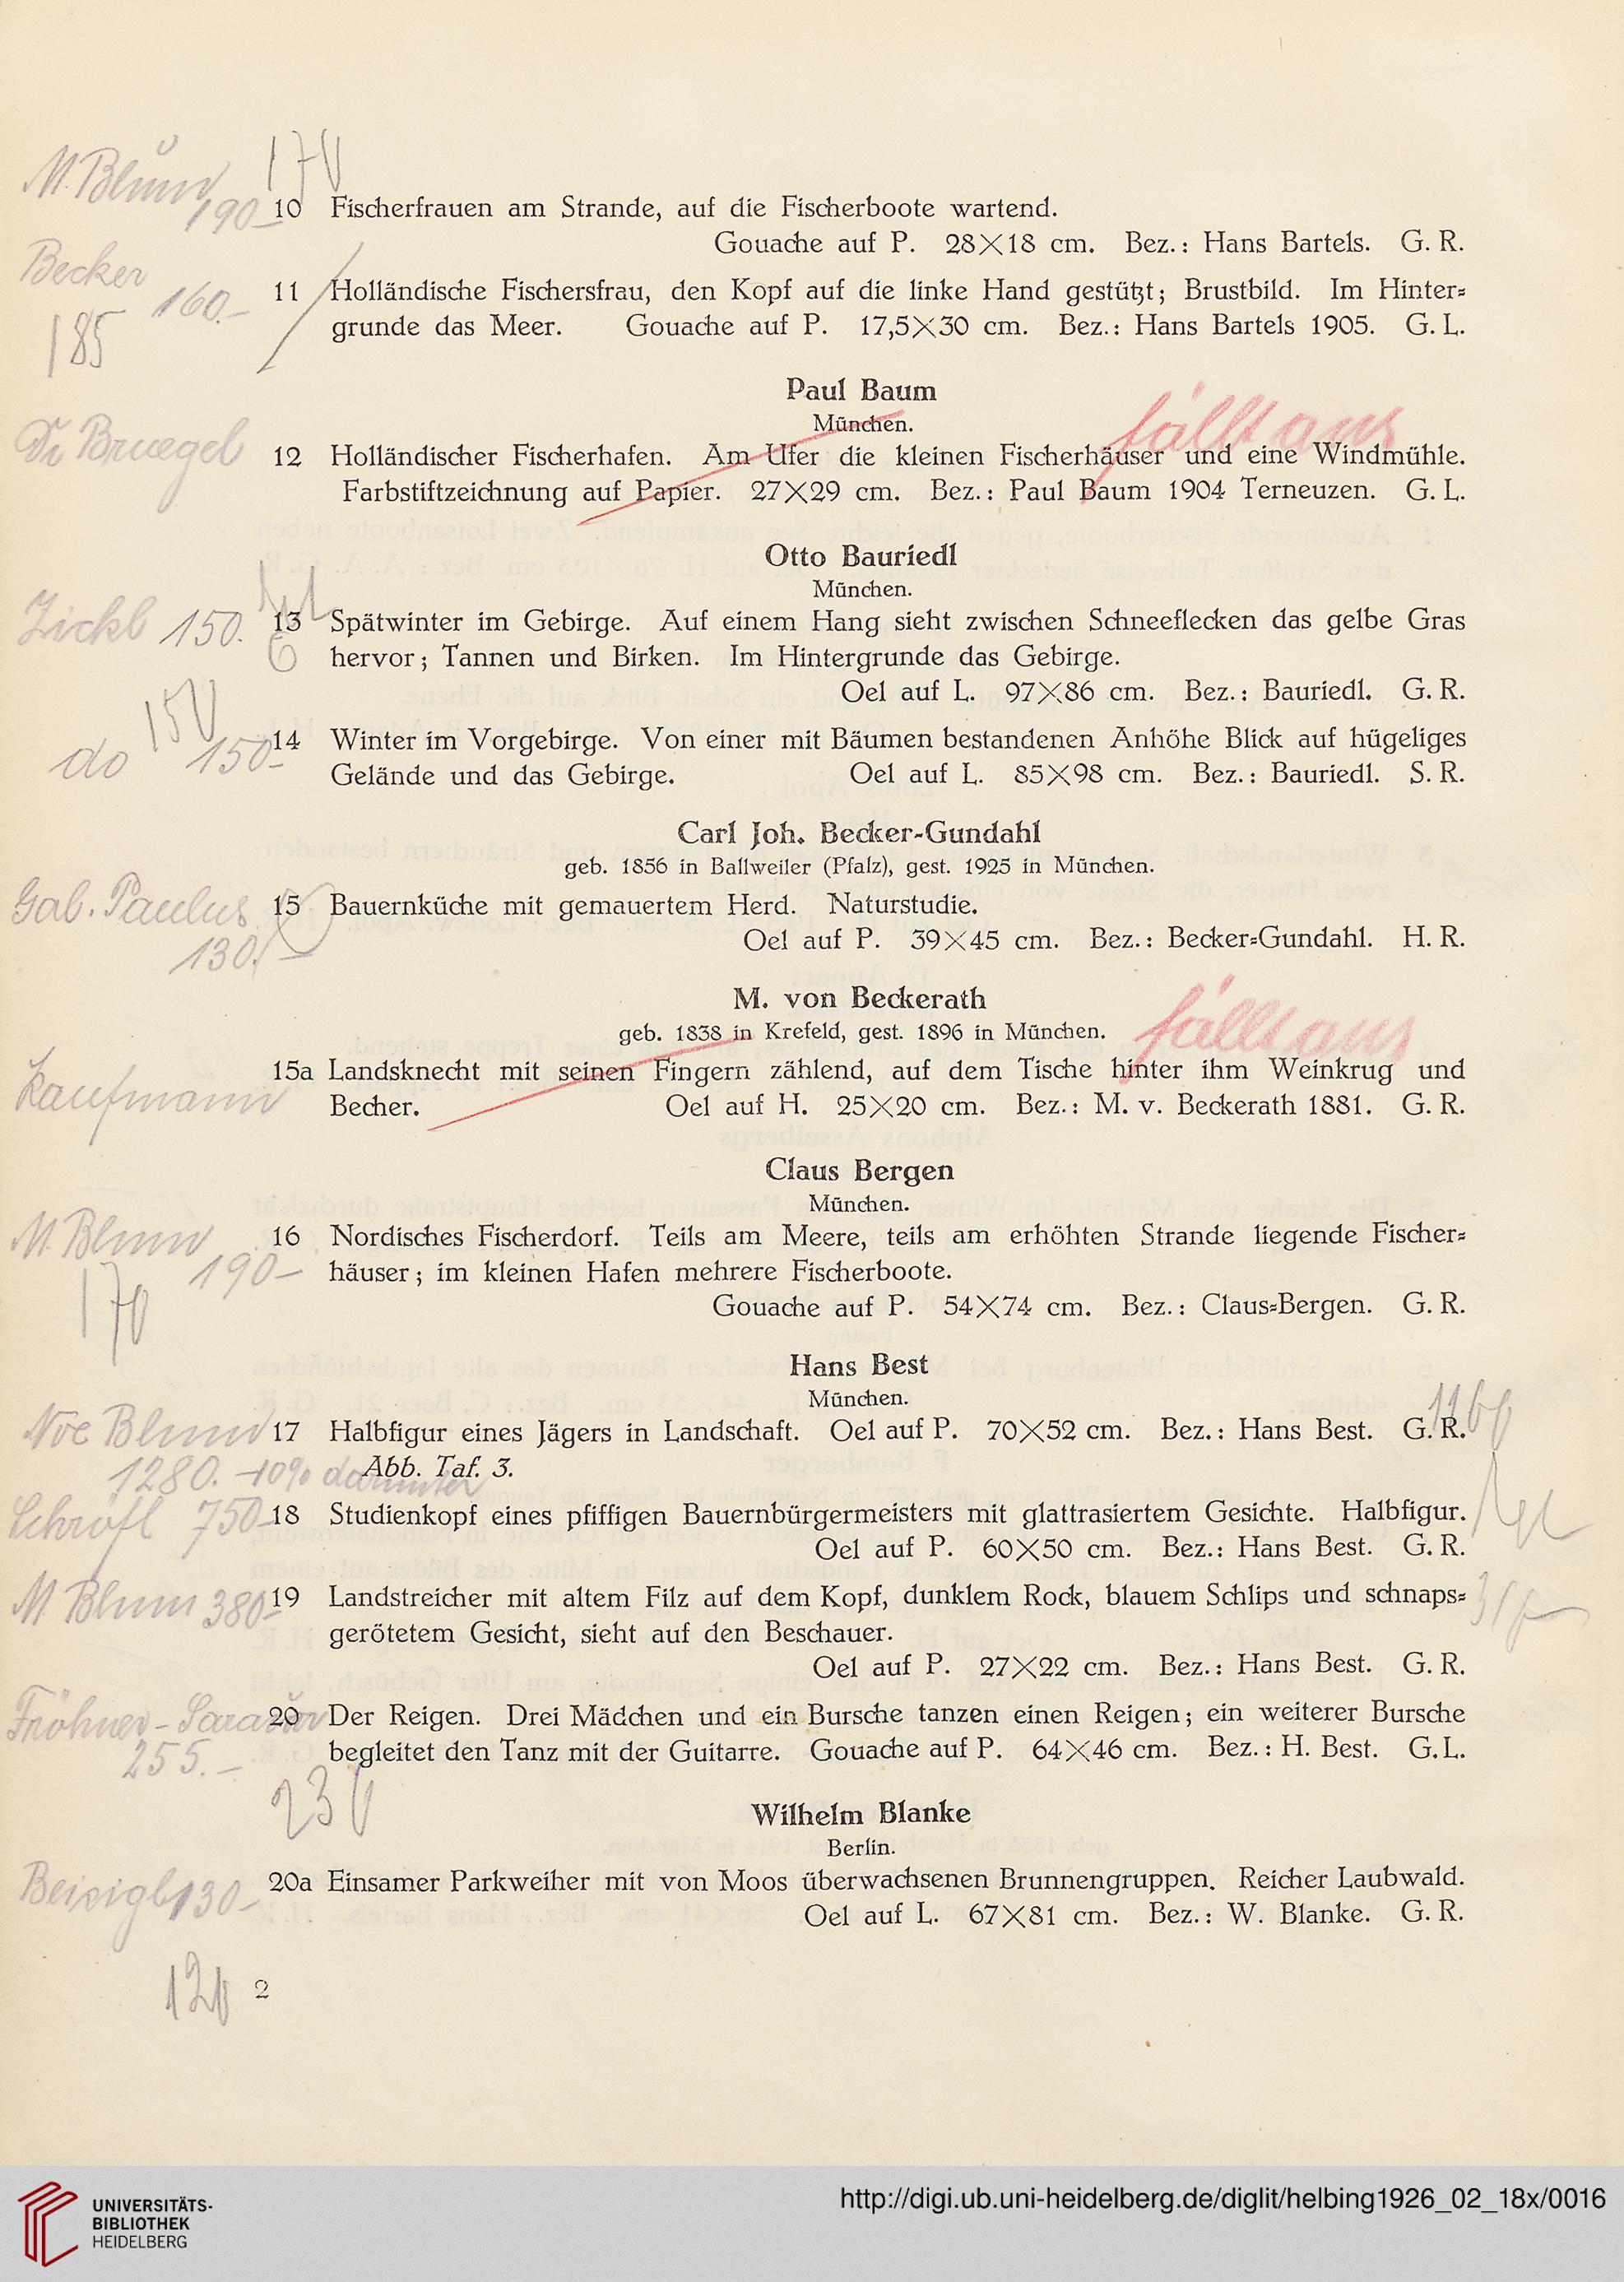 170
M. Blum 190.- 10 Fischerfrauen am Strande, auf die Fischerboote wartend.
Gouache auf P. 28×18 cm. Bez.: Hans Bartels. G. R.
Becker 160.- 11 Holländische Fischersfrau, den Kopf auf die linke Hand gestützt; Brustbild. Im Hinter=
185 grunde das Meer. Gouache auf P. 17,5×30 cm. Bez.: Hans Bartels 1905. G. L.
Paul Baum
München.
fällt aus
12 Holländischer Fischerhafen. Am Ufer die kleinen Fischerhäuser und eine Windmühle.
Farbstiftzeichnung auf Papier. 27×29 cm. Bez.: Paul Baum 1904 Terneuzen. G. L.
Otto Bauriedl
München.
Zickl 150. 13 Spätwinter im Gebirge. Auf einem Hang sieht zwischen Schneeflecken das gelbe Gras
hervor; Tannen und Birken. Im Hintergrunde das Gebirge.
Oel auf L. 97×86 cm. Bez.: Bauriedl. G. R.
150
do 150- 14 Winter im Vorgebirge. Von einer mit Bäumen bestandenen Anhöhe Blick auf hügeliges
Gelände und das Gebirge. Oel auf L. 85×98 cm. Bez.: Bauriedl. S. R.
Carl Joh. Becker-Gundahl
geb. 1856 in Ballweiler (Pfalz), gest. 1925 in München.
Gal. Paulus 15 Bauernküche mit gemauertem Herd. Naturstudie.
130. Oel auf P. 39×45 cm. Bez.: Becker=Gundahl. H. R.
M. von Beckerath
fällt aus
geb. 1838 in Krefeld, gest. 1896 in München.
Kaufmann 15a Landsknecht mit seinen Fingern zählend, auf dem Tische hinter ihm Weinkrug und
Becher. Oel auf H. 25×20 cm. Bez.: M. v. Beckerath 1881. G. R.
Claus Bergen
München.
M. Blum 190- 16 Nordisches Fischerdorf. Teils am Meere, teils am erhöhten Strande liegende Fischer=
170 häuser; im kleinen Hafen mehrere Fischerboote.
Gouache auf P. 54×74 cm. Bez.: Claus=Bergen. G. R.
Hans Best
München.
Blum 17 Halbfigur eines Jägers in Landschaft. Oel auf P. 70×52 cm. Bez.: Hans Best. G. R.
1280. -10% darunter Abb. Taf. 3.
750- 18 Studienkopf eines pfiffigen Bauernbürgermeisters mit glattrasiertem Gesichte. Halbfigur.
Oel auf P. 60×50 cm. Bez.: Hans Best. G. R.
M Blum 380- 19 Landstreicher mit altem Filz auf dem Kopf, dunklem Rock, blauem Schlips und schnaps=
gerötetem Gesicht, sieht auf den Beschauer.
Oel auf P. 27×22 cm. Bez.: Hans Best. G. R.
20 Der Reigen. Drei Mädchen und ein Bursche tanzen einen Reigen; ein weiterer Bursche
255.- begleitet den Tanz mit der Guitarre. Gouache auf P. 64×46 cm. Bez.: H. Best. G. L.
230
Wilhelm Blanke
Berlin.
130- 20a Einsamer Parkweiher mit von Moos überwachsenen Brunnengruppen. Reicher Laubwald.
Oel auf L. 67×81 cm. Bez.: W. Blanke. G. R.
120 2
UNIVERSITÄTS-
BIBLIOTHEK
HEIDELBERG
http://digi.ub.uni-heidelberg.de/diglit/helbing1926_02_18x/0016